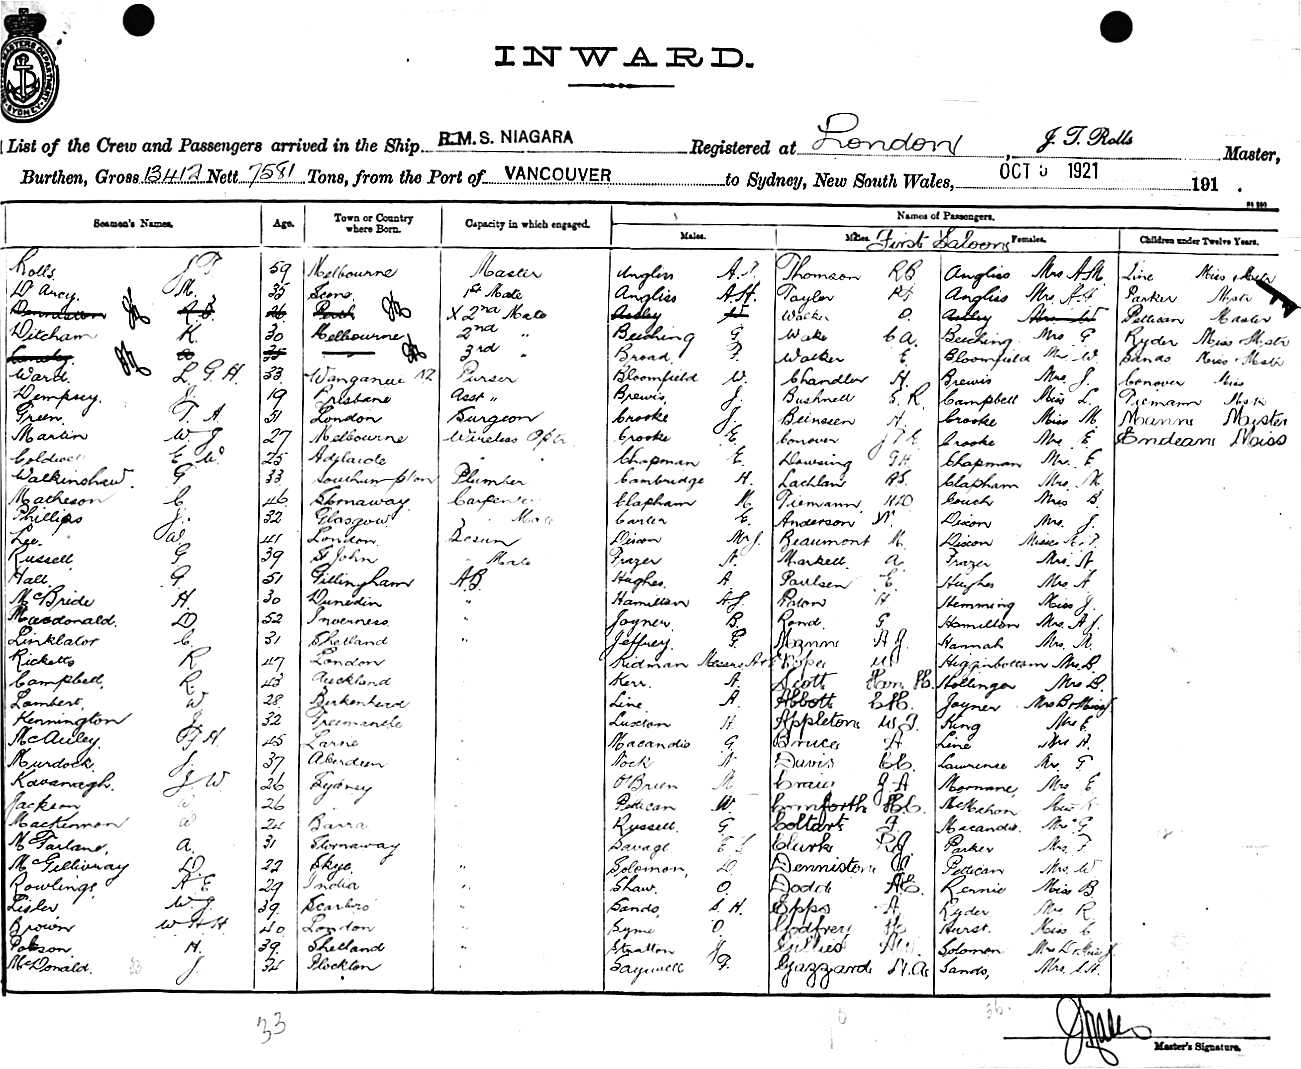 INWARD.
List of the Crew and Passengers arrived in the Ship R.M.S. NIAGARA Registered at London, J. T. Rolls Master,
Burthen, Gross 13412 Nett 7581 Tons, from the Port of VANCOUVER to Sydney, New South Wales, OCT 5 1921 191 .
Seamen's Names. Age. Town or Country where Born. Capacity in which engaged. Names of Passengers.
Males. Males. First Saloon Females. Children under Twelve Years.
Rolls J T 59 Melbourne Master Angliss A. T. Thomson R B Angliss Mrs A. M. Line Miss & Mstr
D'Arcy M. 35 Scone 1st Mate Angliss A. H. Taylor Angliss Mrs. A H Parker Mstr
X 2nd Mate Walker O. Pettican Master
Witcham K. 30 Melbourne 2nd " Beeching G Wake C A. Beeching Mrs. G Ryder Miss Mstr
3rd " Broad F. Walker E. Bloomfield Mrs W. Sands Miss & Mstr
Ward. L G H. 33 Wanganui NZ Purser Bloomfield W. Chandler H. Brewis Mrs. J. Conover Miss
Dempsey. J. 19 Brisbane Asst " Brewis, J. Bushnell S. R. Campbell Miss L. Tiemann Mstr
Green. T. A. 51 London Surgeon Crooke J. Beinssen A. Crooke Miss M. Mannn Myster
Martin W J 27 Melbourne Wireless Optr. Crooke E. Conover J T E. Crooke Mrs. E Endean Miss
Coldwell E W. 25 Adelaide " " Chapman E. Dowsing G H. Chapman Mrs. E
Walkinshaw. G 33 Southampton Plumber Cambridge H. Lachlan R S. Clapham Mrs. M
Matheson C. 46 Stornaway Carpenter Clapham M. Tiemann H D Couch Mrs B.
Phillips J. 32 Glasgow " Mate Carter E. Anderson W. Dixon Mrs. J.
Lee. W 41 London. Bosun Dixon Mr J. Beaumont M. Dixon Misses
Russell G 39 St John " Mate Frazer A. Markell A. Frazer Mrs. A
Hall G. 51 Gillingham A B. Hughes. A. Paulsen E. Hughes Mrs. A
McBride H. 30 Dunedin " Hamilton A J. Paton H Hemming Miss J.
Macdonald. D 52 Inverness " Joyner B. Rond G Hamilton Mrs. A J.
Linklator C. 31 Shetland " Jeffrey. G. Mannn A J. Hannah Mrs. M.
Ricketts R 47 London Kidman Messrs Higginbottam Mrs B
Campbell, R. 43 Auckland Kerr. A. Scott Hon H. Hollinger Mrs B.
Lambert, W 28 Birkenhead Line. A. Abbott C H. Joyner Mrs B & Miss J
Kennington J 32 Freemantle Luxton H Appleton W. J. King Mrs E.
McAuley. F. H. 45 Larne Macandie G. Bruce A Line Mrs A.
Murdock. J. 37 Aberdeen Nock A Davis E C. Lawrence Mrs. G
Kavanagh. J W 26 Sydney O'Brien M Craig J A Mornane, Mrs. E
Jackson W 26 Pettican W. Cornforth H. C. McMahon
MacKinnon W 24 Barra Russell. G Coltart J Macandie. Mrs G
McFarlane, A. 31 Stornaway Savage E L Clark R G Parker Mrs. F
McGillivray D. 22 Skye Solomon, D Denniston Pettican Mrs. W
Rowlings, A E. 29 India Shaw. O. Dodd A C. Rennie Miss B.
Lisler W J 39 Scarbro Sands, S. H. Epps A Ryder Mrs R.
Brown W H H 40 London Syme O. Godfrey Hurst. Miss C
Pobson H. 39 Shetland Stratton J Gullies Solomon Mrs D & Miss J
McDonald. J. 34 Plockton Saywell F. Gazzard Sands, Mrs. S. H.
33
Master's Signature.